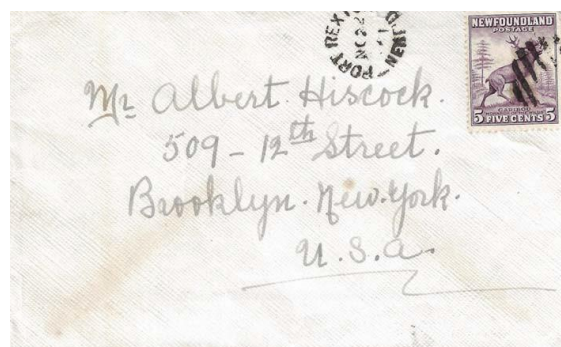 PORT REXTON NFL'D
NO 22
41
NEWFOUNDLAND
POSTAGE
CARIBOU
5 FIVE CENTS 5
Mr Albert Hiscock.
509 - 12th Street.
Brooklyn. New. York.
U. S. a.